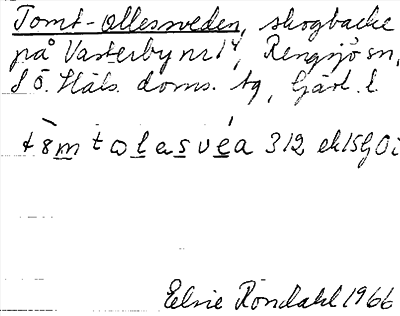 Tomt-Ollesveden, skogbacke
på Västerby nr 14, Rengsjö sn,
S Ö. Häls. doms. tg, Gävl. l.
312 ek15GOi
Elsie Röndahl 1966